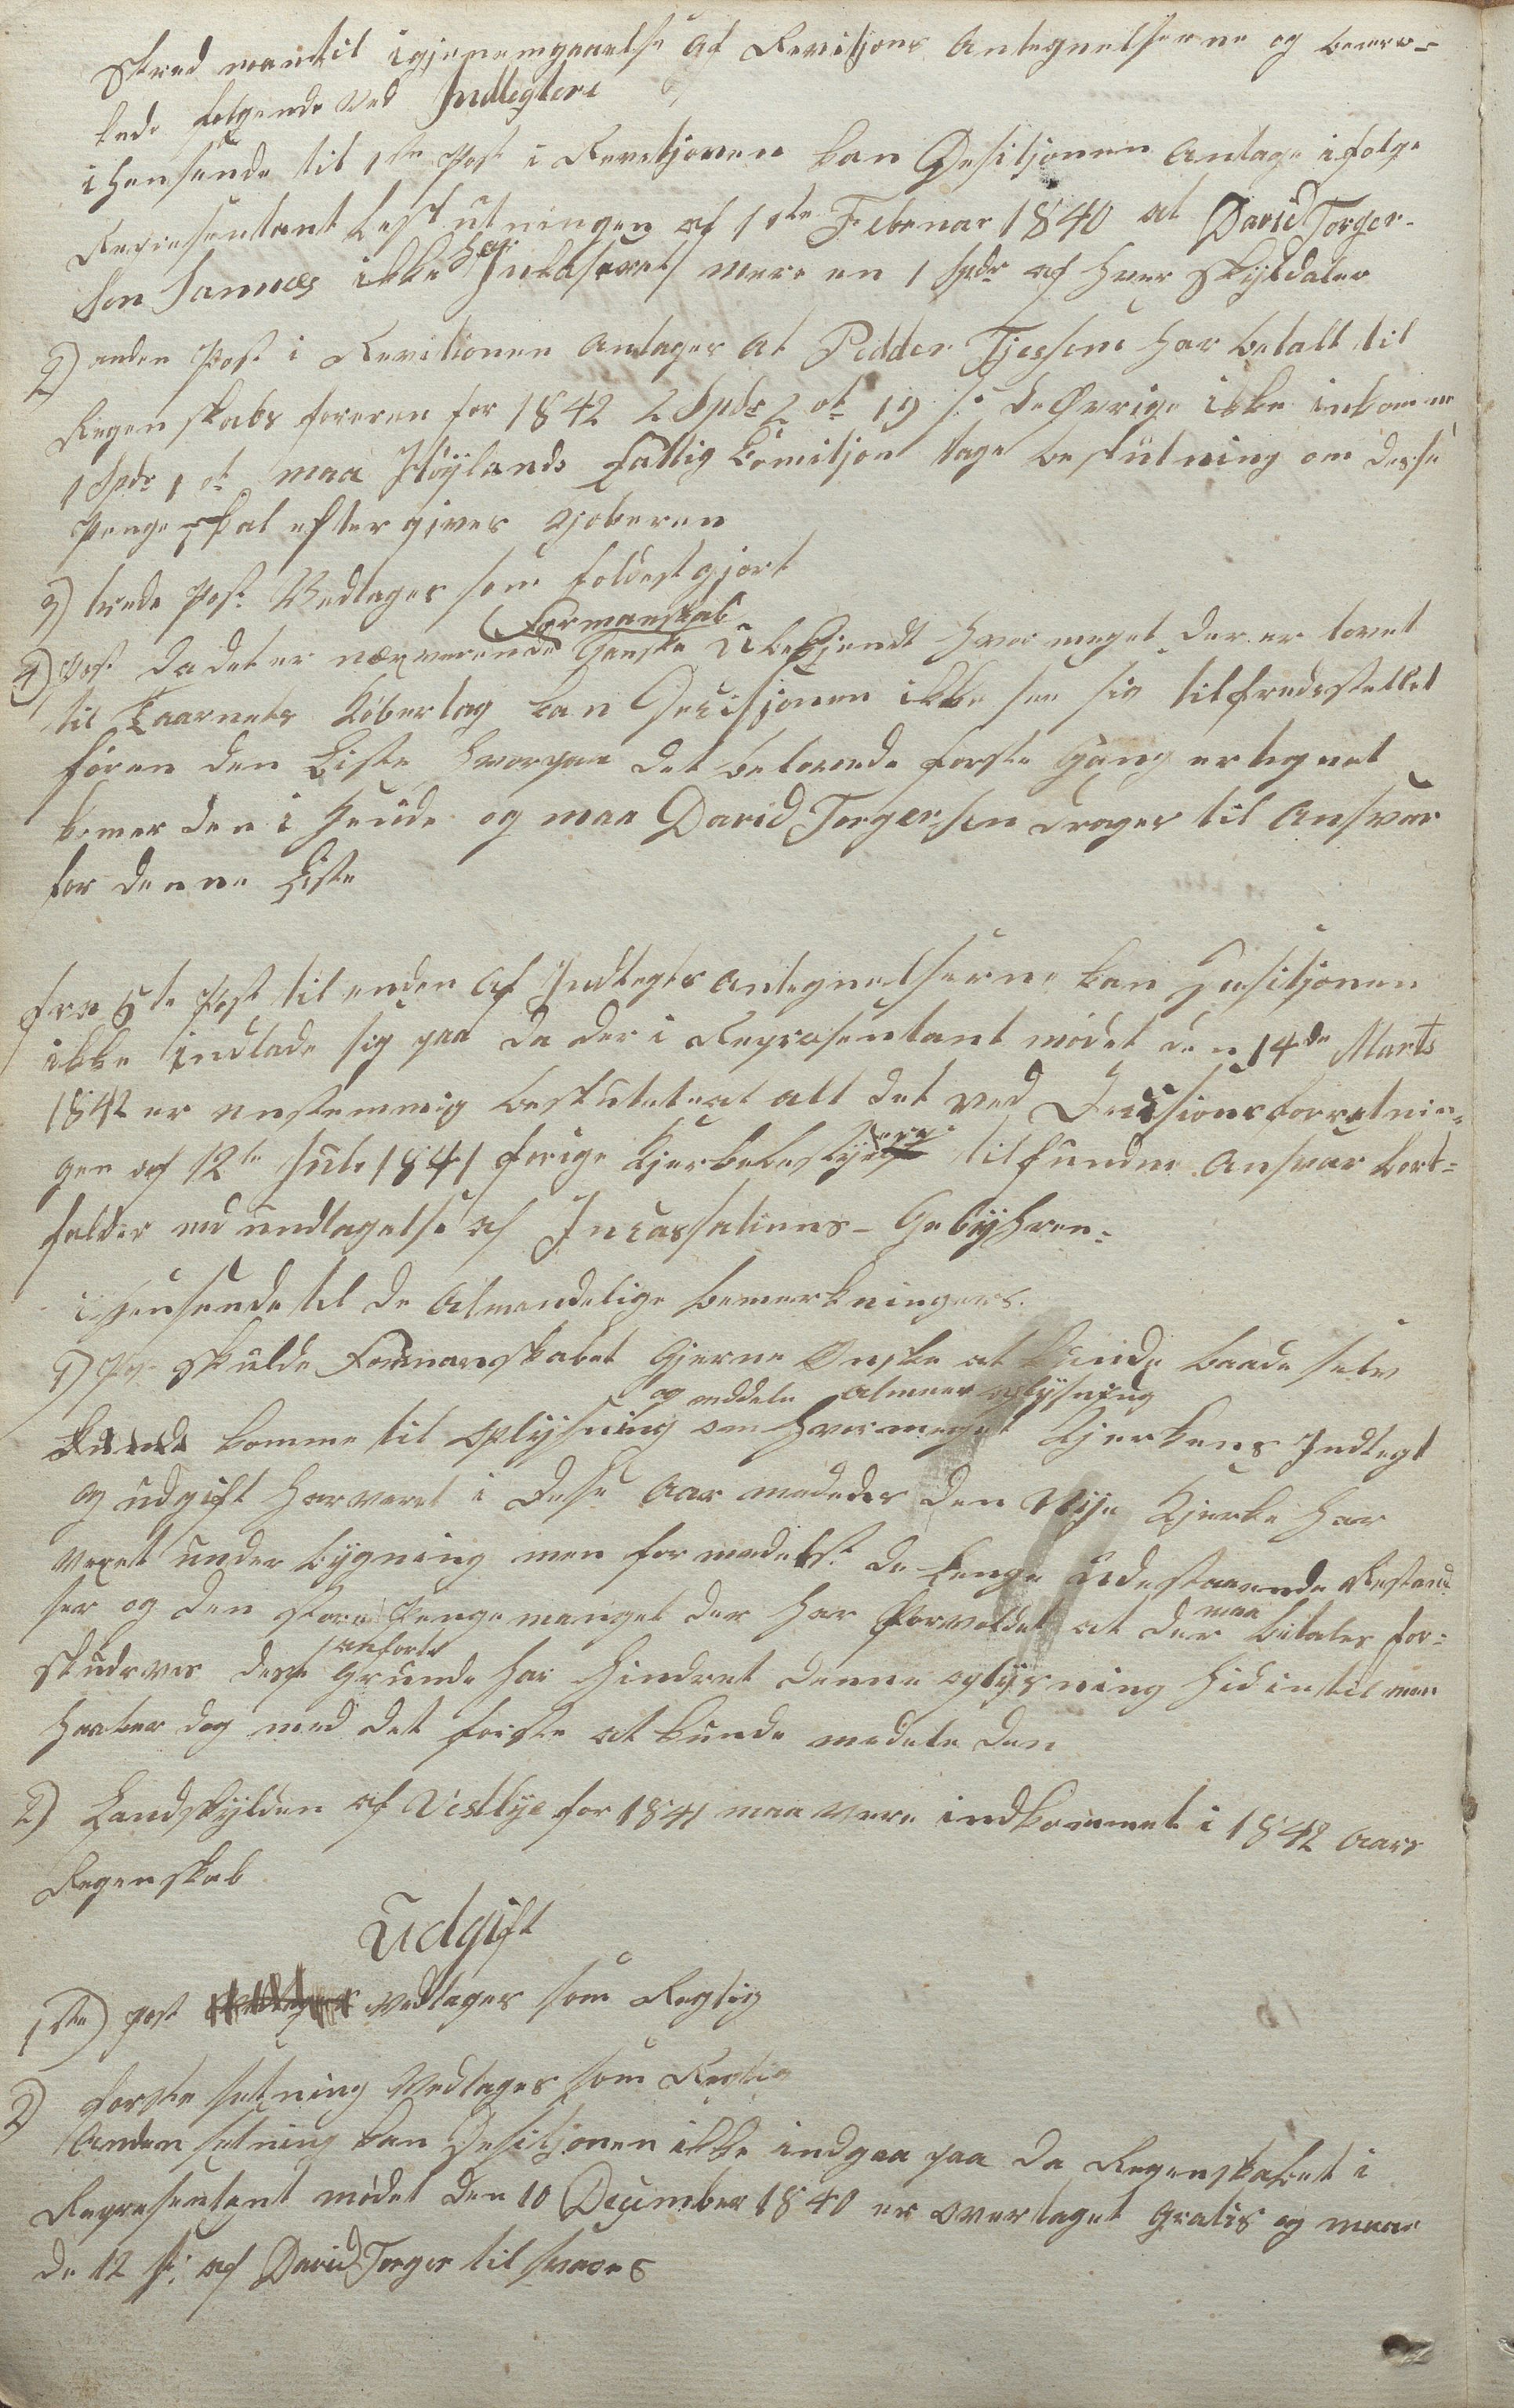 Skred man til igjenemgaaelse af Revisjons Antegnelserne og bemer-
kede følgende Ved Indtegterne
i Hensende til 1ste Post i Revisjonen kan Desisjonen Antage ifølge
Representant beslutningen af 11te Februar 1840 at David Torger-
sen Sannæs ikke har Inkaseret mere en 1 Spdr af hver Skylddaler
2) anden Post i Revisionen Antages At Pedder Tjessem har betalt til
Regenskabs føreren for 1842 2 Spdr 2 ort 19 s: de Øvrige ikke inkomne
1 Spdr 1 ort maa Høylands Fattig Comisjon tage beslutning om disse
Penge skal eftergives Kjøberen
3) trede Post Vedtages som foldestgjort
4) Post Da det er nærverende Formanskab Ganske Ubekjendt hvor meget der er lovet
til Taarnets Kobbertag kan Decisjonen ikke see sig tilfredsstellet
føren den Liste hvorpaa det belovede første Gang er tegnet
komer den i Hende og maa David Torgersen drages til Ansvar
for denne Liste
fra 5te Post til enden Af Indtegts Antegnelserne kan Desisjonen
ikke indlade sig paa da der i Representant mødet den 14de Marts
1842 er enstemmig besluttet at alt det ved Decisions forretnin-
gen af 12te Juli 1841 forige Kjerkebestyrere tilfundne Ansvar bort-
falder med undtagelse af Incassations-Gebyhren.
i Hensende til de Almindelige bemerkninger.
1) Po skulde Formanskabet Gjerne Ønske at kunde baade selv
komme til Oplysning og meddele almeen oplysning om hvor meget Kjerkens Indtegt
og udgift har veret i disse Aar medens den Nye Kjerke har
veret under bygning men formedelst de lenge udestaaende Restand-
ser og den store Penge mangel der har forvoldet at der maa betales for-
skudsvis disse anførte Grunde har hindret denne oplysning hid intil man
haaber dog med det første at kunde medele den
2) Landskylden af Vestlye for 1841 maa vere indkommet i 1842 Aars
Regenskab
Udgift
1ste) Post vedtages som Regtig
2) første setning Vedtages som Regtig
Anden setning kan Desisjonen ikke indgaa paa da Regenskabet i
Representant mødet den 10 December 1840 er overtaget Gratis og maa
de 12 s: af David Torger til svares